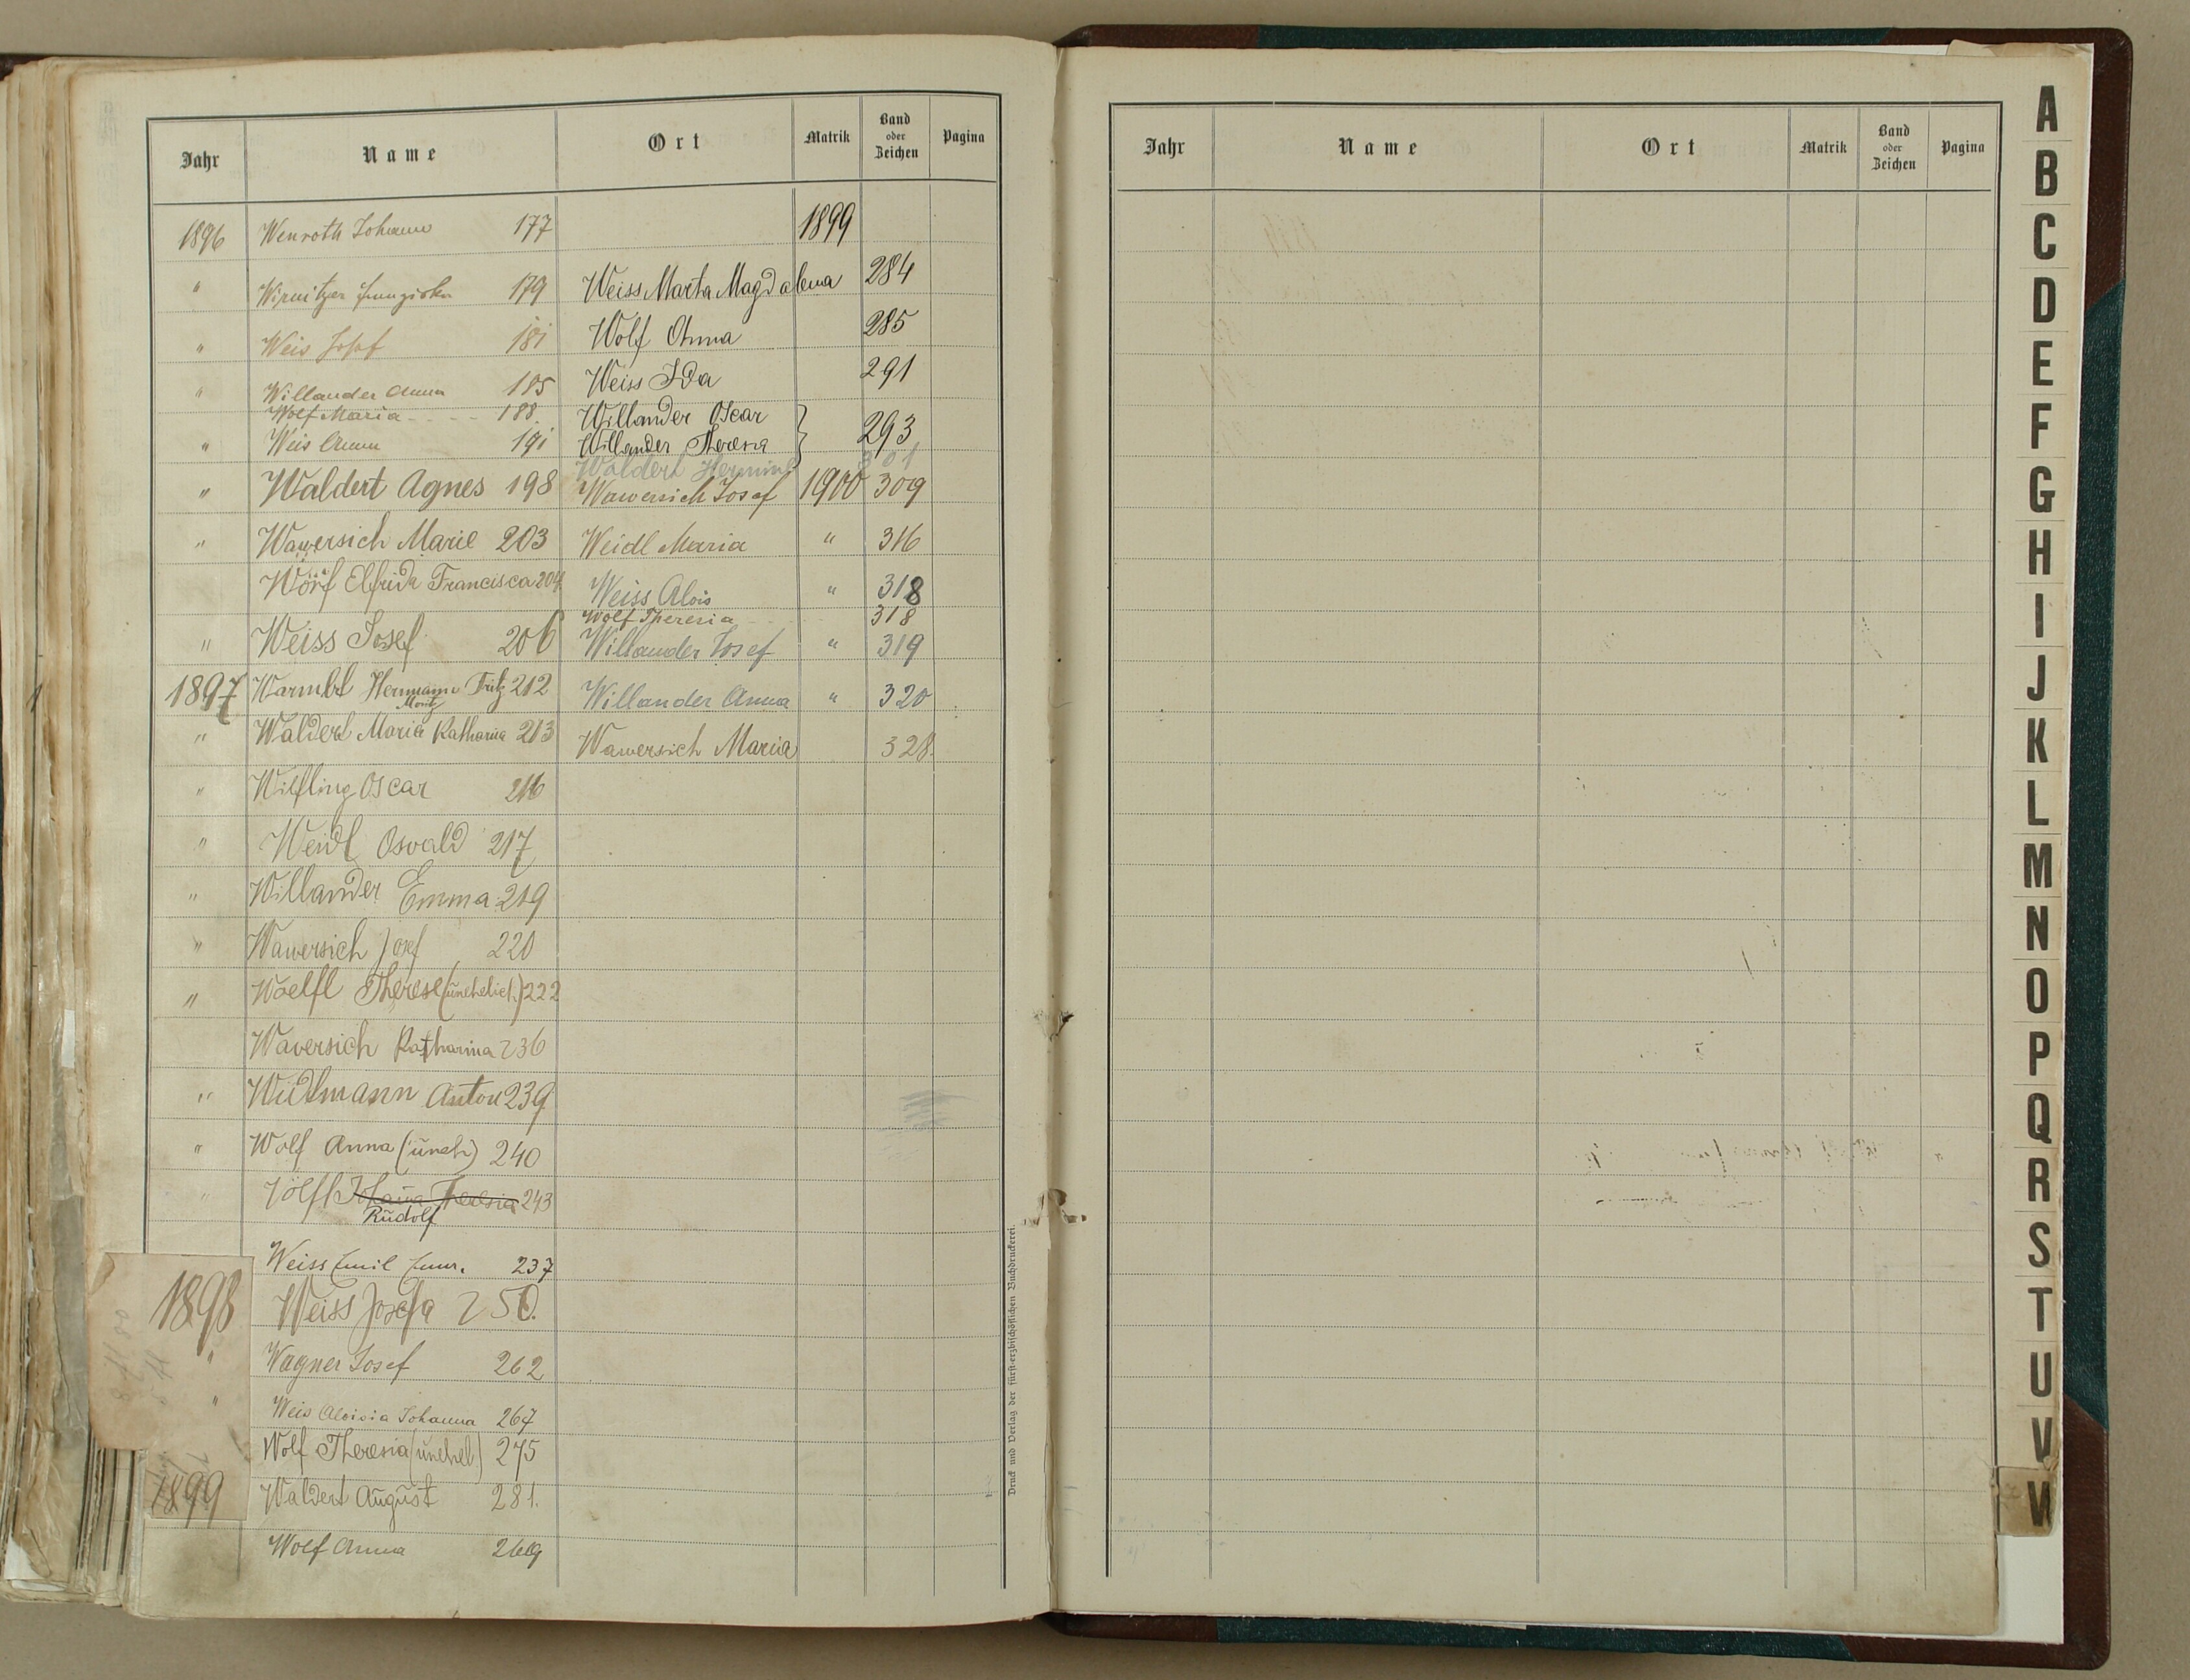 Jahr Name Ort Matrik Band oder Zeichen Pagina
1896 Wenroth Johann 177
" Wirnitzer Franziska 179
" Weis Josef 181
" Willander Anna 185
Wolf Maria - - - - 188
" Weis Anna 191
" Waldert Agnes 198
" Wawersich Marie 203
Wörf Elfrida Francisca 204
" Weiss Josef 206
1897 Hermann Fritz 212
Moritz
" Waldert Maria Katharina 213
" Wilfling Oscar 216
" Weidl Osvald 217
" Willander Emma 219
" Wawersich Josef 220
" Woelfl Therese (unehelich.) 222
Waversich Katharina 236
" Widtmann Anton 239
" Wolf Anna (üneh) 240
" Wölfl Johana Theresia 243
Rüdolf
Weiss Emil 237
1898 Weiss Josefa 250.
" Wagner Josef 262
" Weis Aloisia Johanna 267
Wolf Theresia (ünehel.) 275
1899 Waldert Aügüst 281.
Wolf Anna 269
1899
Weiss Marta Magdalena 284
Wolf Anna 285
Weiss Ida 291
Willander Oscar
Willander Theresia } 293
Waldert Hermine 301
Wawersich Josef 1900 309
Weidl Maria " 316
Weiss Alois " 318
Wolf Theresia 318
Willander Josef " 319
Willander Anna " 320
Wawersich Maria 328.
Druck und Verlag der fürst-erzbischöflichen Buchdruckerei.
Jahr Name Ort Matrik Band oder Zeichen Pagina
A
B
C
D
E
F
G
H
I
J
K
L
M
N
O
P
Q
R
S
T
U
V
W